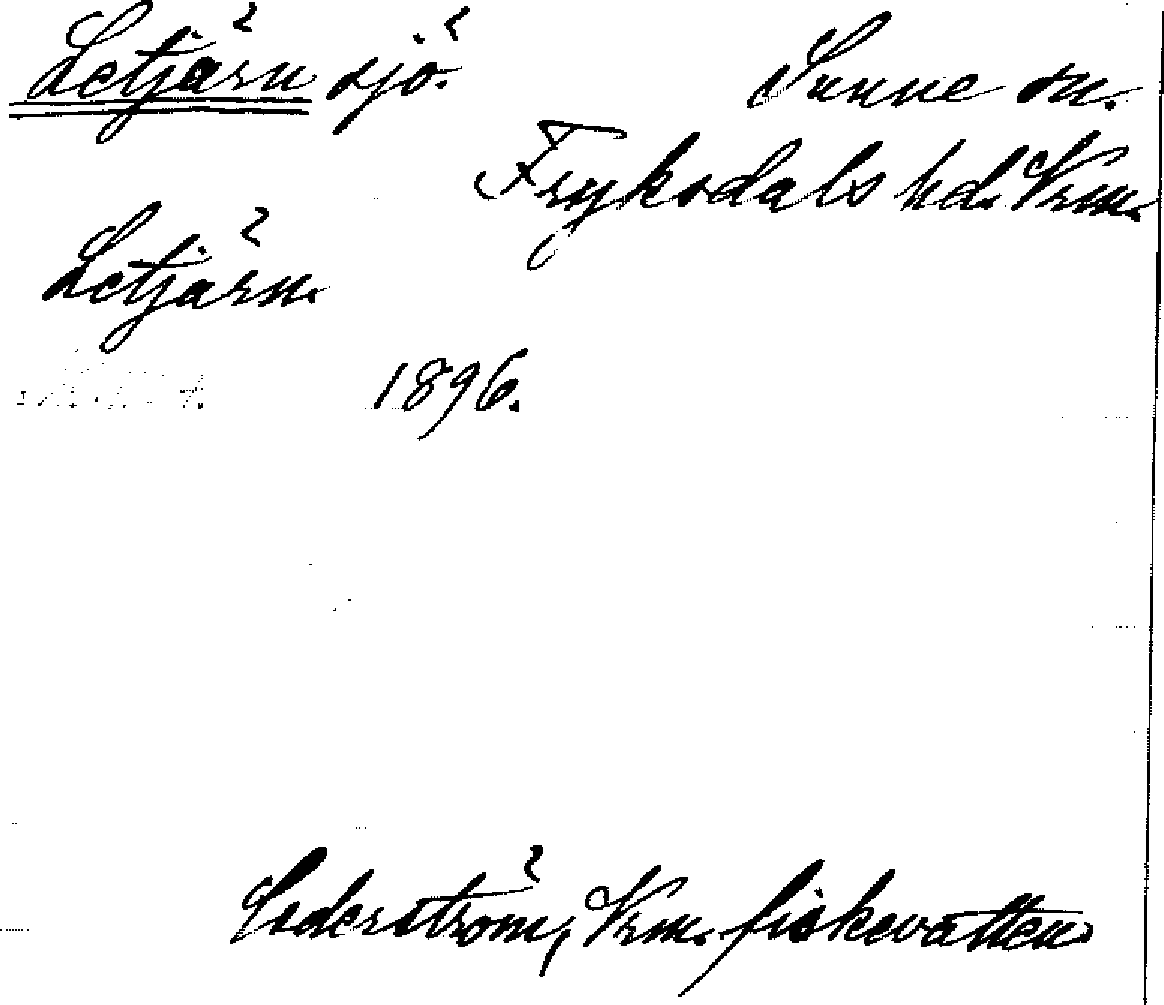 Letjärn sjö. Sunne sn.
Fryksdals hd. Vrm.
Letjärn.
1896.
Cederström, Vrm. fiskevatten